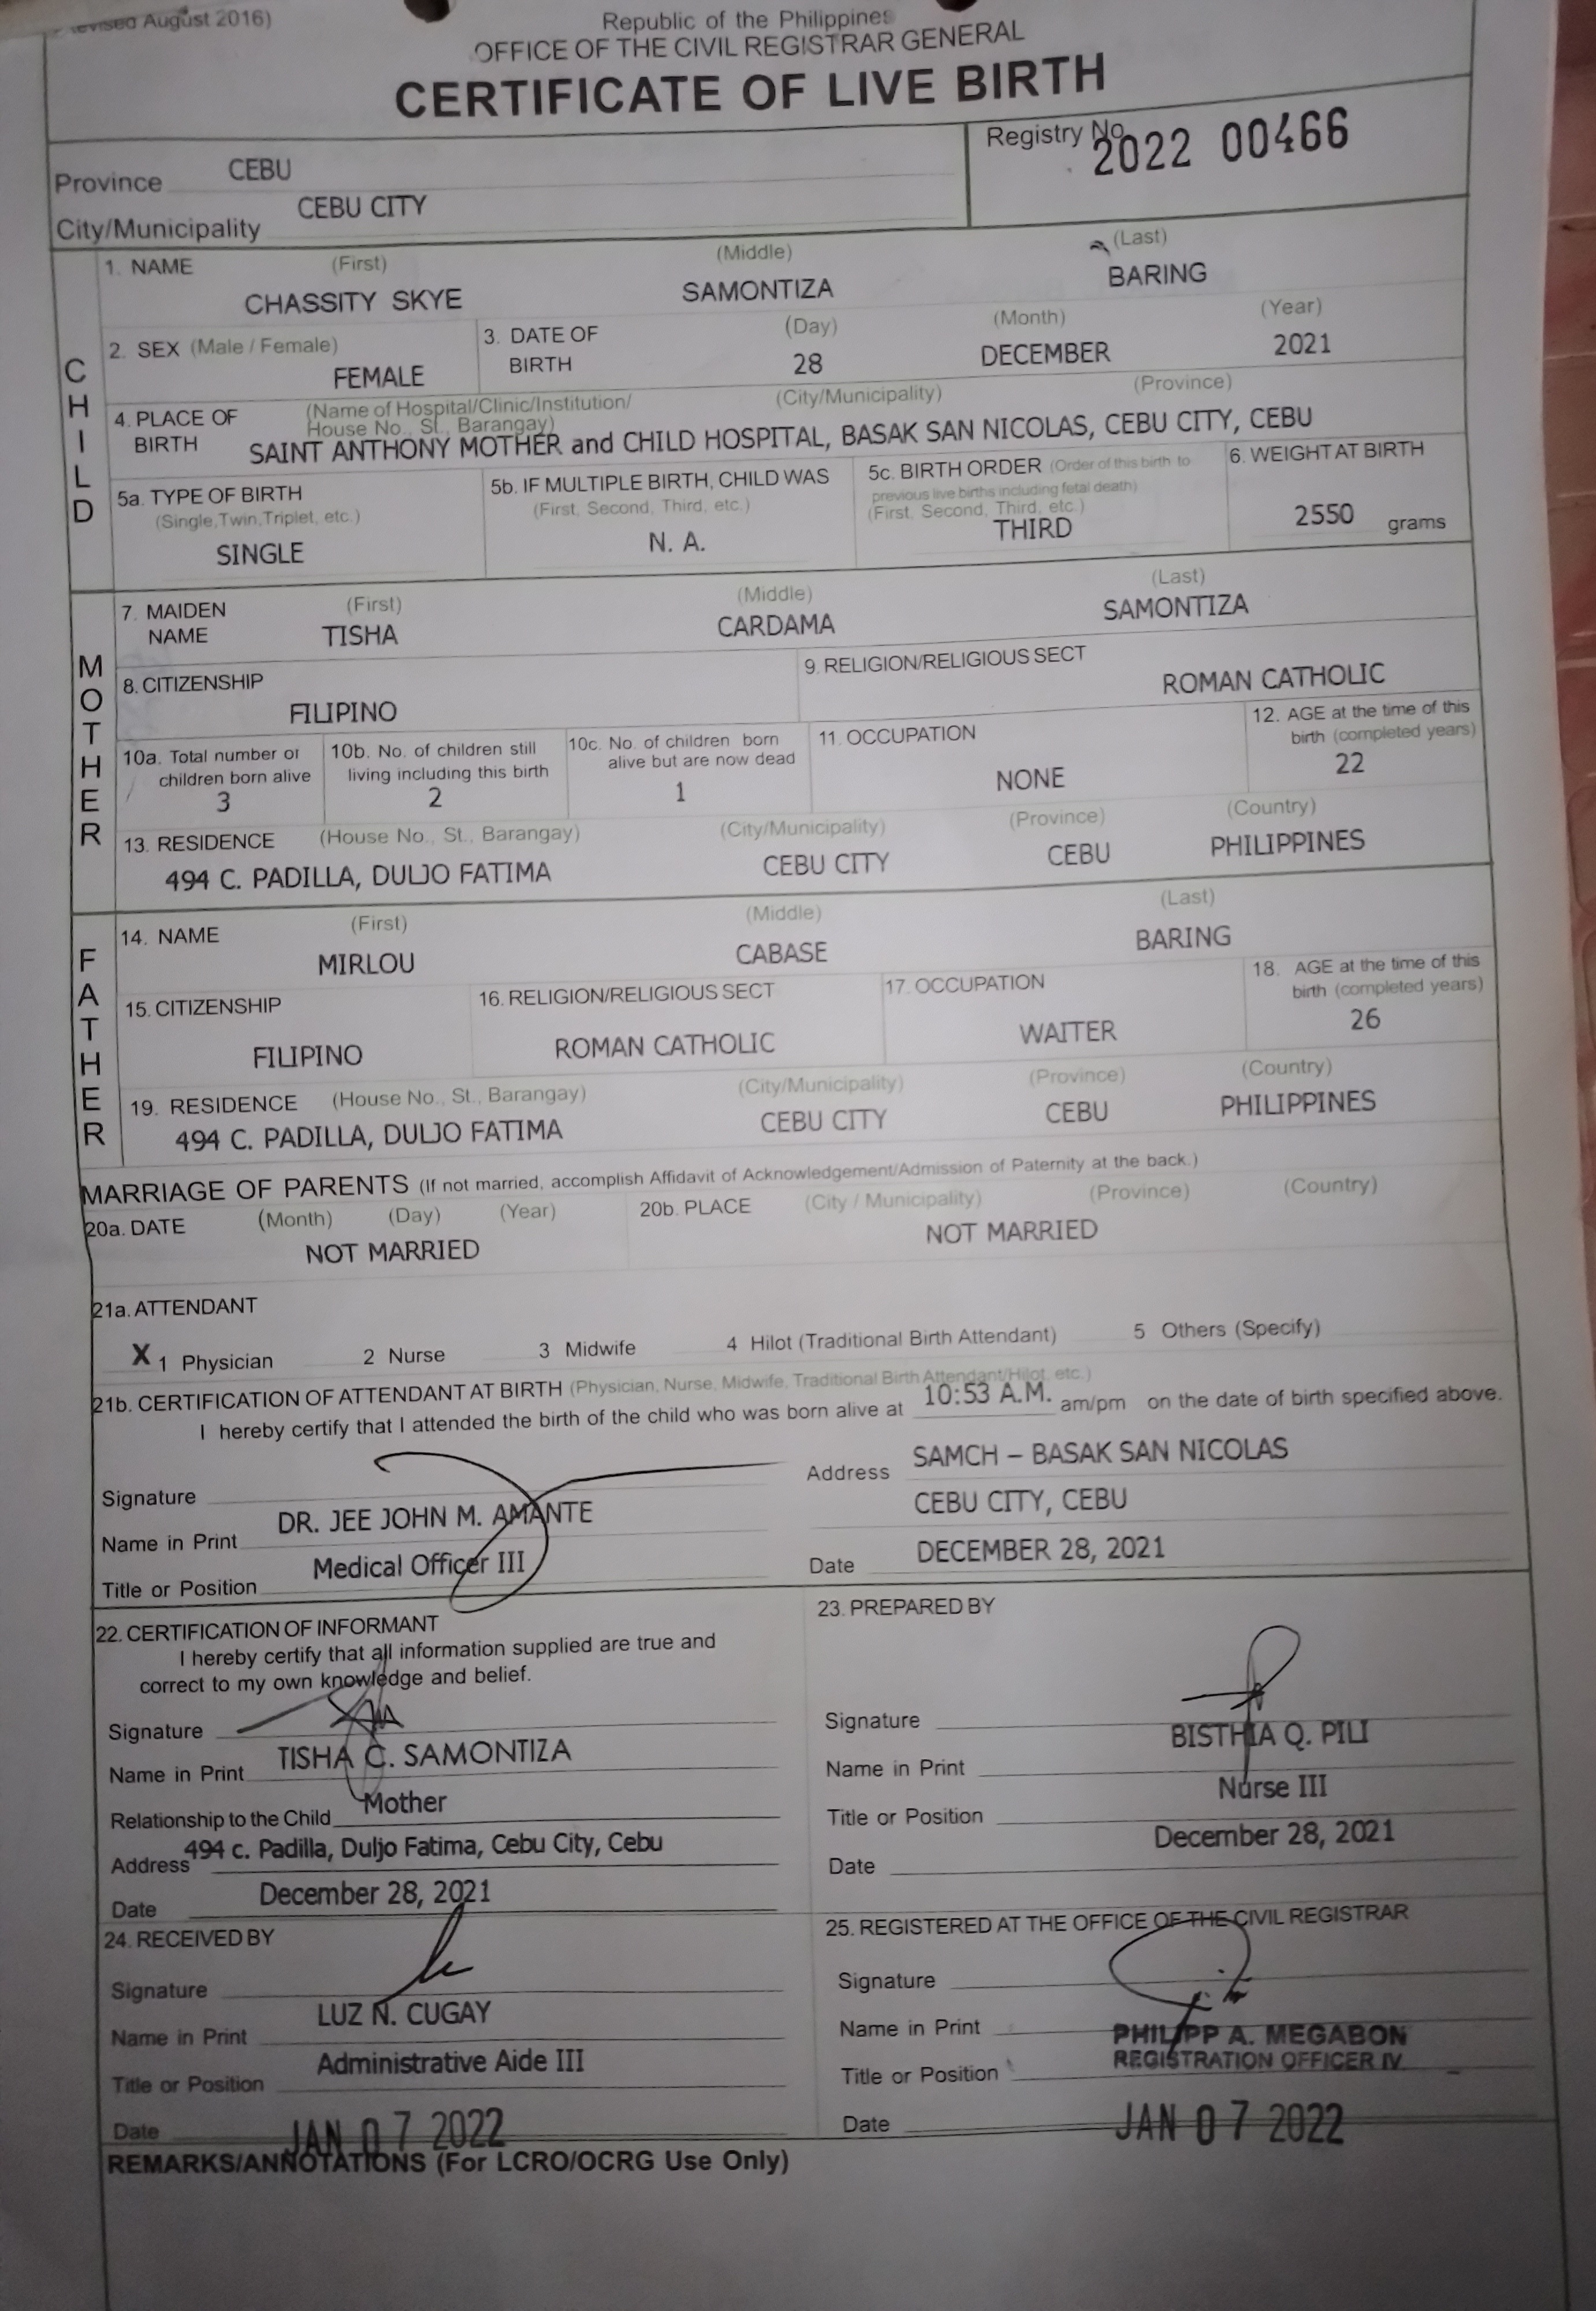 Revised August 2016)
Republic of the Philippines
OFFICE OF THE CIVIL REGISTRAR GENERAL
CERTIFICATE OF LIVE BIRTH
Province CEBU
City/Municipality CEBU CITY
Registry No. 2022 00466
CHILD
1. NAME (First) (Middle) (Last)
CHASSITY SKYE SAMONTIZA BARING
2. SEX (Male / Female) FEMALE
3. DATE OF BIRTH (Day) (Month) (Year)
28 DECEMBER 2021
4. PLACE OF BIRTH (Name of Hospital/Clinic/Institution/ House No., St., Barangay) (City/Municipality) (Province)
SAINT ANTHONY MOTHER and CHILD HOSPITAL, BASAK SAN NICOLAS, CEBU CITY, CEBU
5a. TYPE OF BIRTH (Single,Twin,Triplet, etc.)
SINGLE
5b. IF MULTIPLE BIRTH, CHILD WAS (First, Second, Third, etc.)
N. A.
5c. BIRTH ORDER (Order of this birth to previous live births including fetal death) (First, Second, Third, etc.)
THIRD
6. WEIGHT AT BIRTH
2550 grams
MOTHER
7. MAIDEN NAME (First) (Middle) (Last)
TISHA CARDAMA SAMONTIZA
8. CITIZENSHIP
FILIPINO
9. RELIGION/RELIGIOUS SECT
ROMAN CATHOLIC
10a. Total number of children born alive
3
10b. No. of children still living including this birth
2
10c. No. of children born alive but are now dead
1
11. OCCUPATION
NONE
12. AGE at the time of this birth (completed years)
22
13. RESIDENCE (House No., St., Barangay) (City/Municipality) (Province) (Country)
494 C. PADILLA, DULJO FATIMA CEBU CITY CEBU PHILIPPINES
FATHER
14. NAME (First) (Middle) (Last)
MIRLOU CABASE BARING
15. CITIZENSHIP
FILIPINO
16. RELIGION/RELIGIOUS SECT
ROMAN CATHOLIC
17. OCCUPATION
WAITER
18. AGE at the time of this birth (completed years)
26
19. RESIDENCE (House No., St., Barangay) (City/Municipality) (Province) (Country)
494 C. PADILLA, DULJO FATIMA CEBU CITY CEBU PHILIPPINES
MARRIAGE OF PARENTS (If not married, accomplish Affidavit of Acknowledgement/Admission of Paternity at the back.)
20a. DATE (Month) (Day) (Year)
NOT MARRIED
20b. PLACE (City / Municipality) (Province) (Country)
NOT MARRIED
21a. ATTENDANT
X 1 Physician 2 Nurse 3 Midwife 4 Hilot (Traditional Birth Attendant) 5 Others (Specify)
21b. CERTIFICATION OF ATTENDANT AT BIRTH (Physician, Nurse, Midwife, Traditional Birth Attendant/Hilot, etc.)
I hereby certify that I attended the birth of the child who was born alive at 10:53 A.M. am/pm on the date of birth specified above.
Signature
Name in Print DR. JEE JOHN M. AMANTE
Title or Position Medical Officer III
Address SAMCH – BASAK SAN NICOLAS
CEBU CITY, CEBU
Date DECEMBER 28, 2021
22. CERTIFICATION OF INFORMANT
I hereby certify that all information supplied are true and
correct to my own knowledge and belief.
Signature
Name in Print TISHA C. SAMONTIZA
Relationship to the Child Mother
Address 494 c. Padilla, Duljo Fatima, Cebu City, Cebu
Date December 28, 2021
23. PREPARED BY
Signature
Name in Print BISTHIA Q. PILI
Title or Position Nurse III
Date December 28, 2021
24. RECEIVED BY
Signature
Name in Print LUZ N. CUGAY
Title or Position Administrative Aide III
Date JAN 07 2022
25. REGISTERED AT THE OFFICE OF THE CIVIL REGISTRAR
Signature
Name in Print PHILIPP A. MEGABON
Title or Position REGISTRATION OFFICER IV
Date JAN 07 2022
REMARKS/ANNOTATIONS (For LCRO/OCRG Use Only)